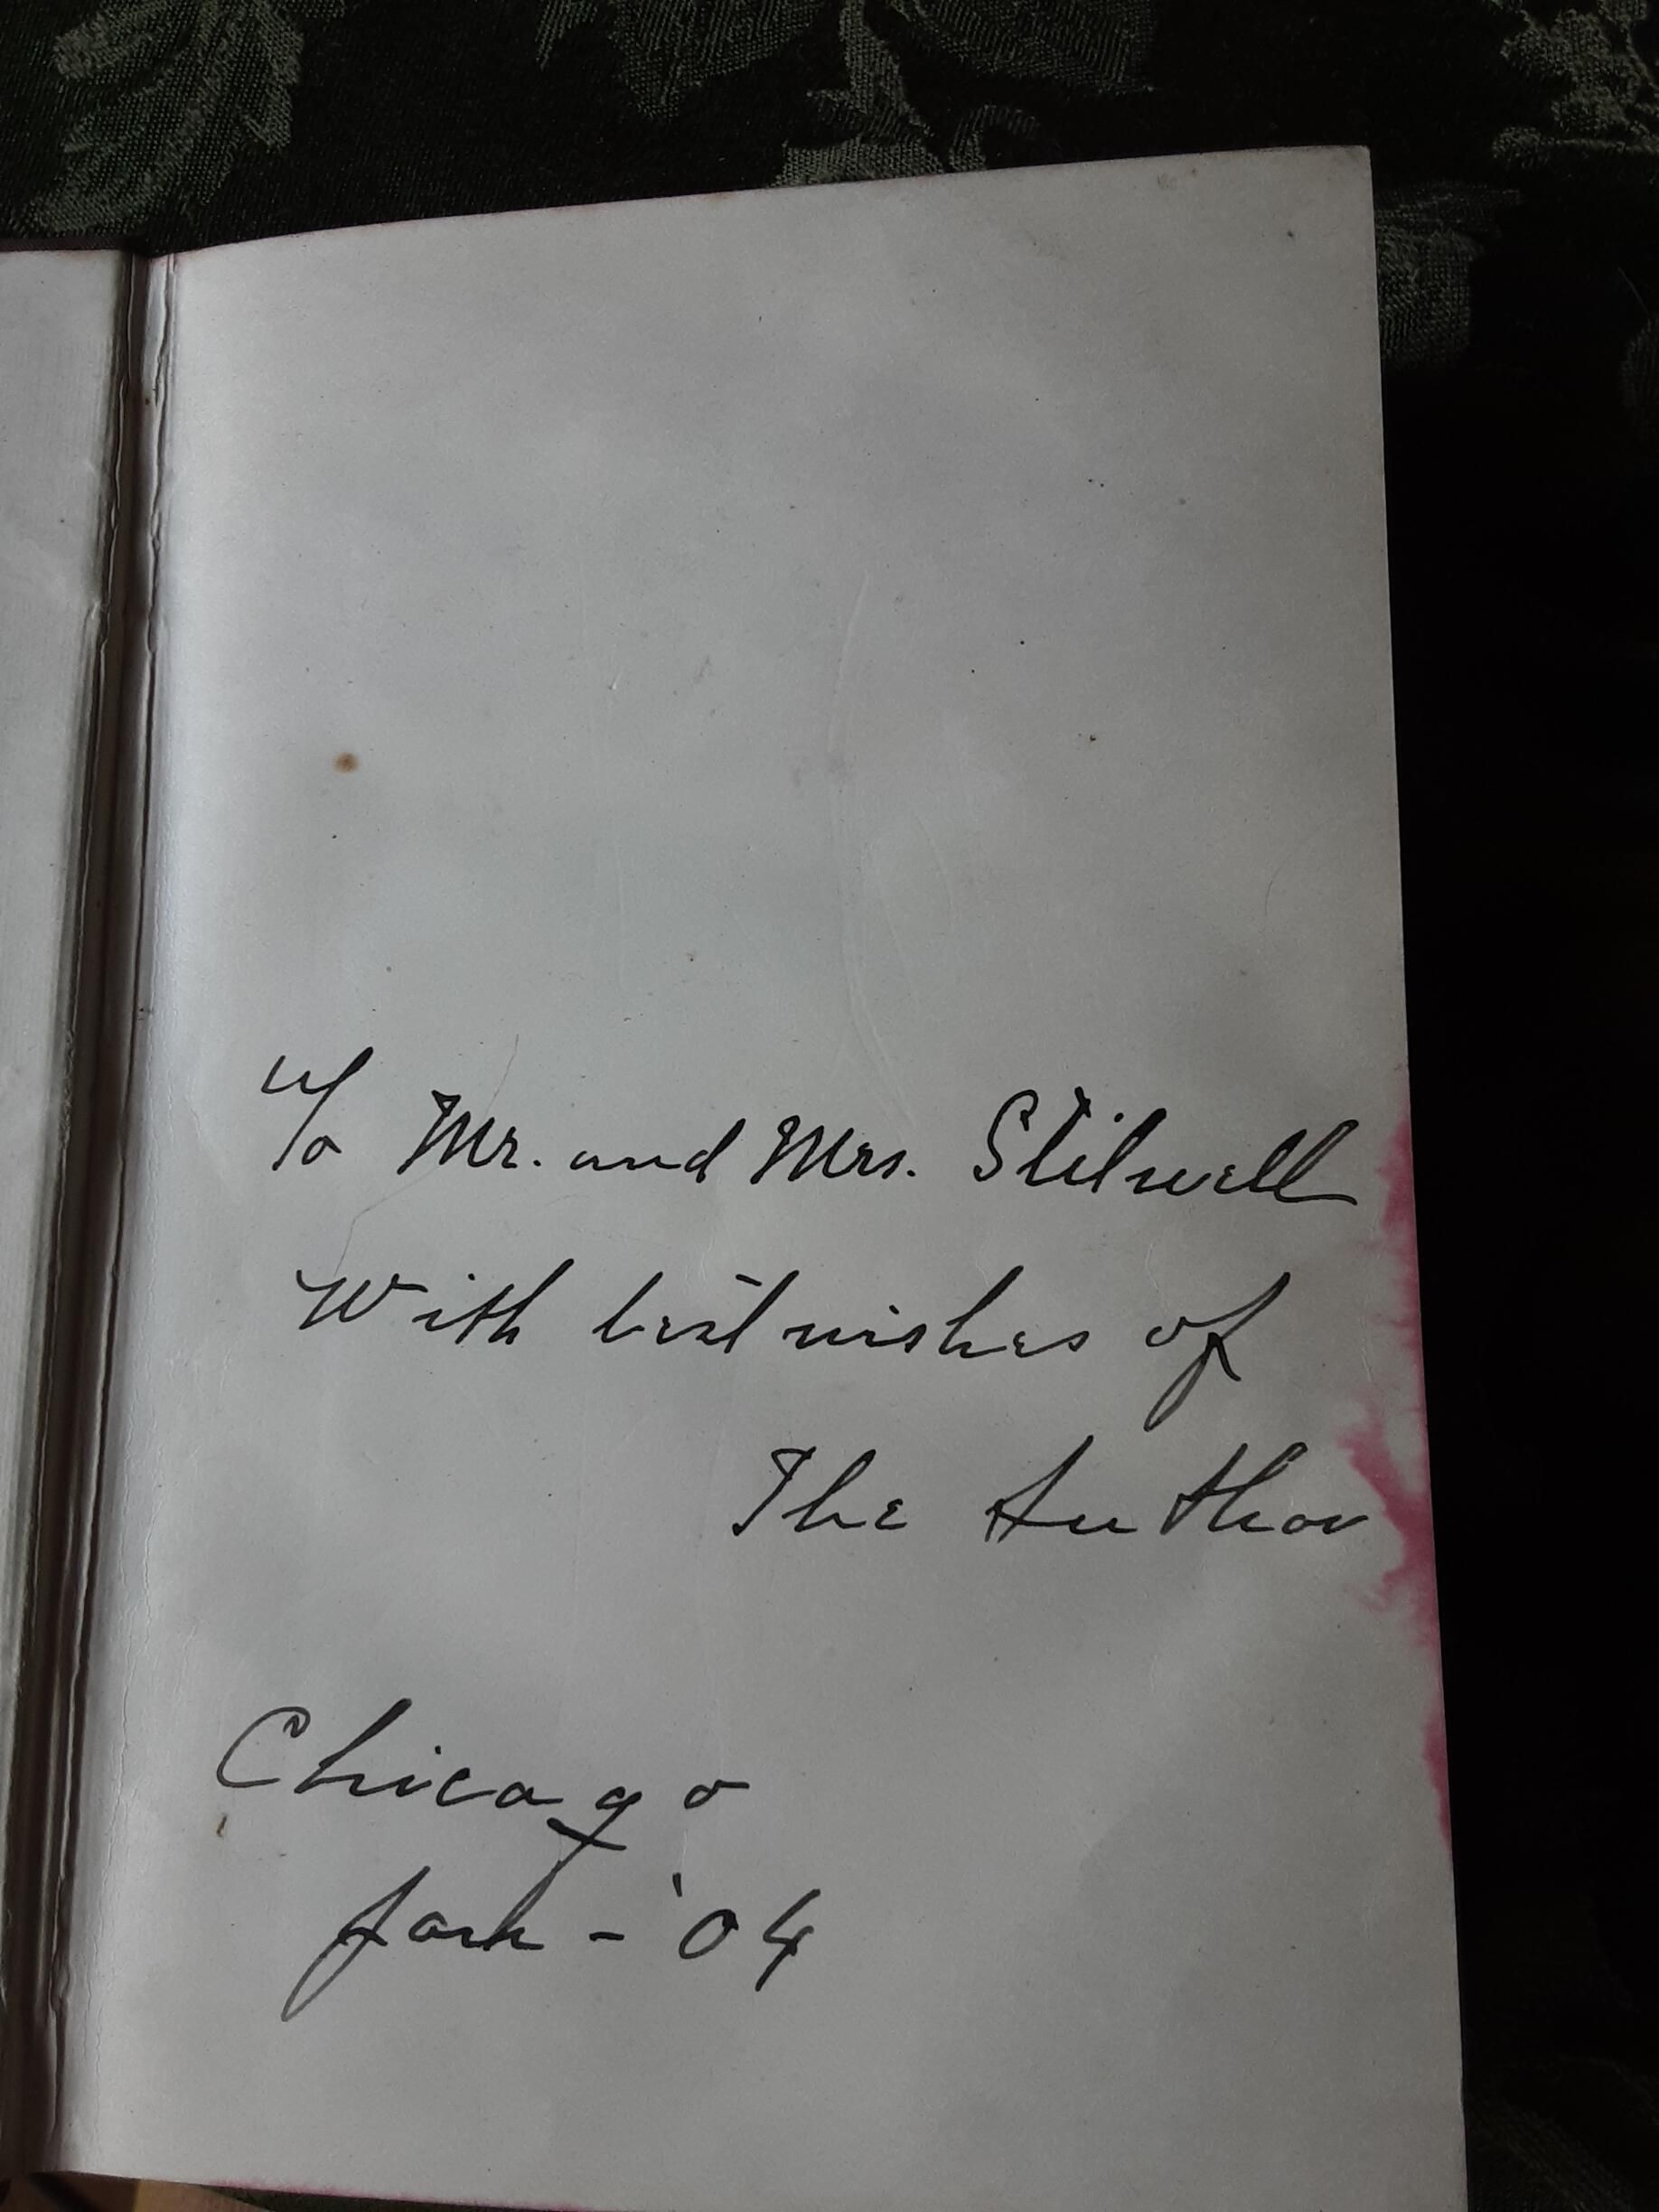 To Mr. and Mrs. Stilwell
With best wishes of
The Author
Chicago
Jan - '04